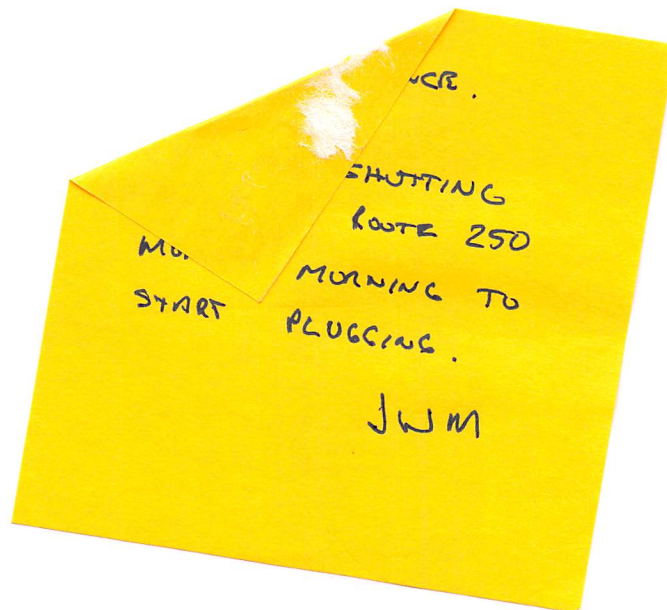 SHUTTING
ROUTE 250
MORNING TO
START PLUGGING.
JWM